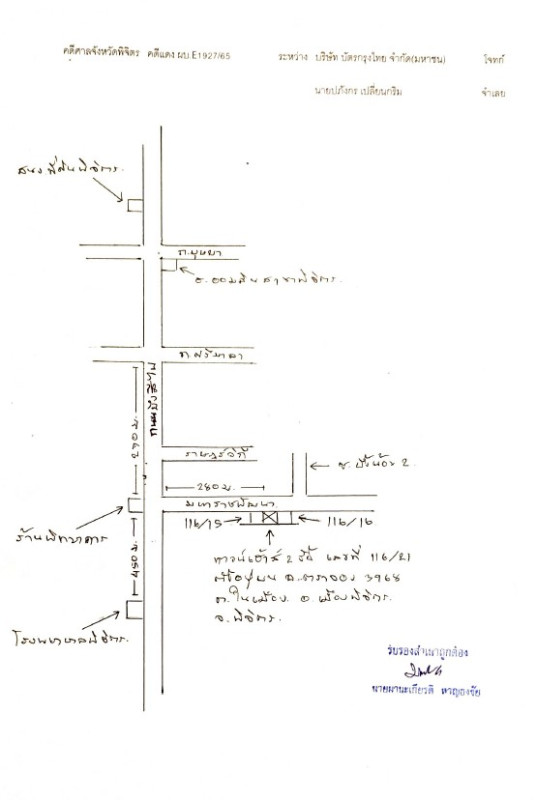 คดีศาลจังหวัดพิจิตร คดีแดง ผบ.E1927/65 ระหว่าง บริษัท บัตรกรุงไทย จำกัด(มหาชน) โจทก์
นายปภังกร เปลี่ยนกริม จำเลย
สนง.ที่ดินพิจิตร.
ถ.บุษบา
ธ.ออมสิน สาขาพิจิตร.
ถ.ศรีมาลา
ถนนบึงสีไฟ
270 ม.
ราษฎร์วิถี
280 ม.
มหาราชพัฒนา
116/15
116/16
ร้านพิทยาคาร
450 ม.
ทาวน์เฮ้าส์ 2 ชั้น เลขที่ 116/21
ตั้งอยู่บน ฉ.ตราจอง 3968
ต.ในเมือง อ.เมืองพิจิตร.
จ.พิจิตร.
โรงพยาบาลพิจิตร.
รับรองสำเนาถูกต้อง